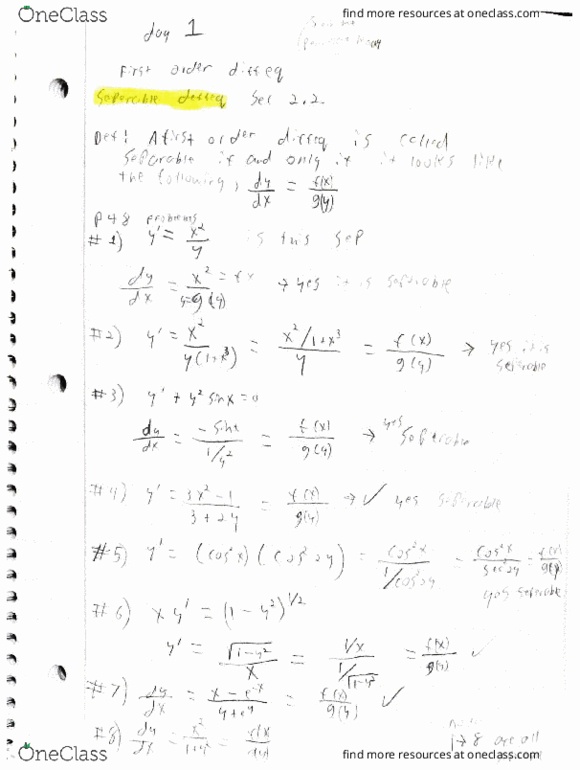 OneClass
find more resources at oneclass.com
day 1
First order diffeq
Seperable deffeq Sec 2.2.
Def! A first order diffeq is called
Separable if and only if it looks like
the following, dy/dx = f(x)/g(y)
P48 problems
#1) y' = x²/y is this sep
dy/dx = x² = fx / y=g(y) → yes it is seperable
#2) y' = x²/y(1+x³) = x²/1+x³ / y = f(x)/g(y) → yes it is seperable
#3) y' + y² sinx = 0
dy/dx = -sinx / 1/y² = f(x)/g(y) → yes seperable
#4) y' = 3x²-1 / 3+2y = f(x)/g(y) → ✓ yes seperable
#5) y' = (cos²x)(cos²2y) = cos²x / 1/cos²2y = cos²x / sec²2y = f(x)/g(y)
yes seperable
#6) xy' = (1-y²)^1/2
y' = √1-y² / x = 1/x / 1/√1-y² = f(x)/g(y) ✓
#7) dy/dx = x-e^-x / y+e^y = f(x)/g(y) ✓
#8) dy/dx = x²/1+y² = f(x)/g(y)
1→8 are all
OneClass
find more resources at oneclass.com